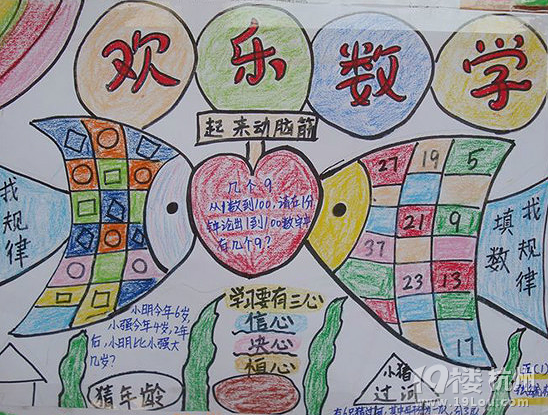 欢乐数学
起来动脑筋
几个9
从1数到100,请在1分
钟说出1到100数字中
有几个9?
找规律
27 19 5
21 9
37
23 13
17
填数
找规律
小明今年6岁,
小强今年4岁,2年
后,小明比小强大
几岁?
猜年龄
学习要有三心
信心
决心
恒心
小猪
过河
19楼杭州
www.19lou.com